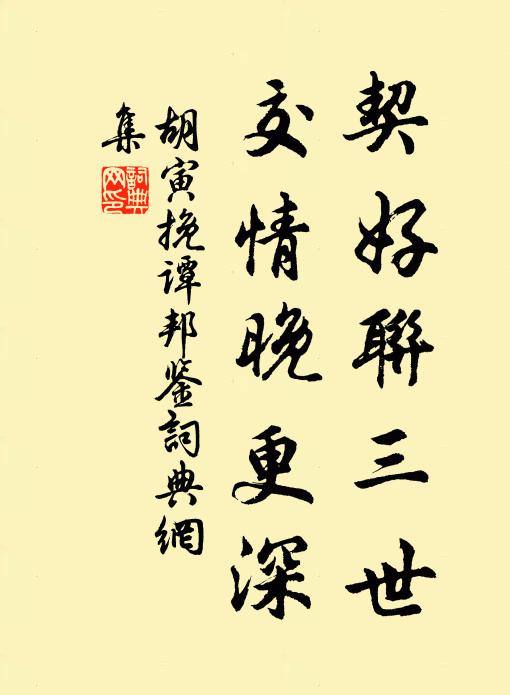 契好聯三世
交情晚更深
胡寅挽谭邦鉴詞典網
集
詞典網印